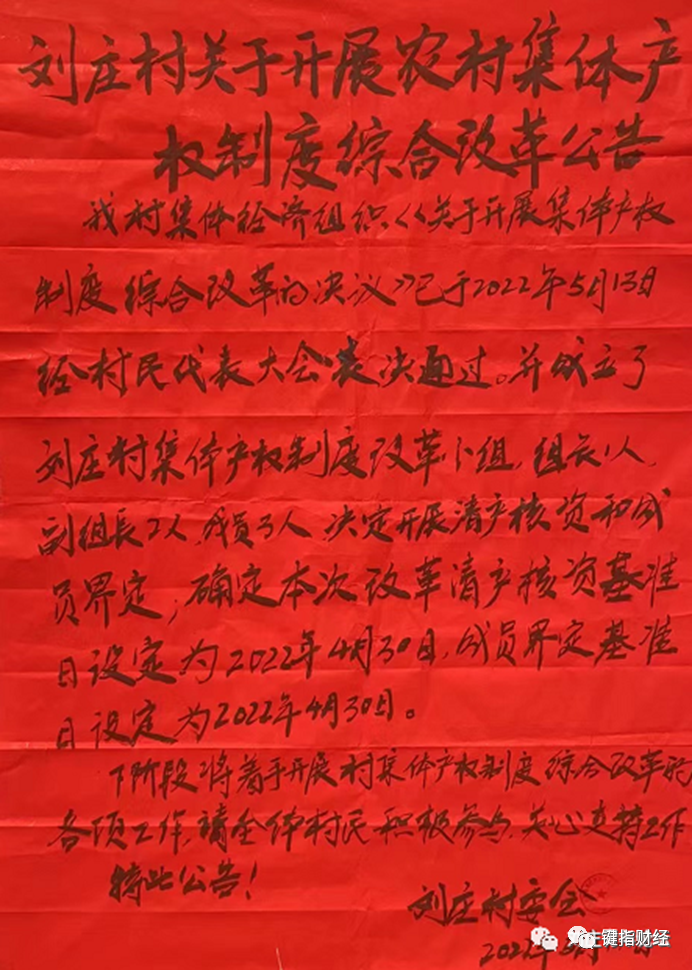 刘庄村关于开展农村集体产
权制度综合改革公告
我村集体经济组织《关于开展集体产权
制度综合改革的决议》已于2022年5月13日
经村民代表大会表决通过。并成立了
刘庄村集体产权制度改革小组，组长1人，
副组长2人，成员3人，决定开展清产核资和成
员界定；确定本次改革清产核资基准
日设定为2022年4月30日，成员界定基准
日设定为2022年4月30日。
下阶段将着手开展村集体产权制度综合改革的
各项工作，请全体村民积极参与，关心支持工作，
特此公告！
刘庄村委会
2022年
主键指财经